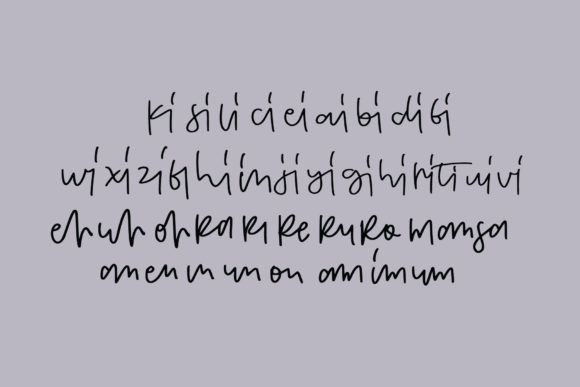 ki si li ci ei ai bi di fi
wi xi zi fl hi in ji yi gi hi ri ti ui vi
eh uh oh Ra Ri Re Ru Ro mamsa
an en in un on am im um